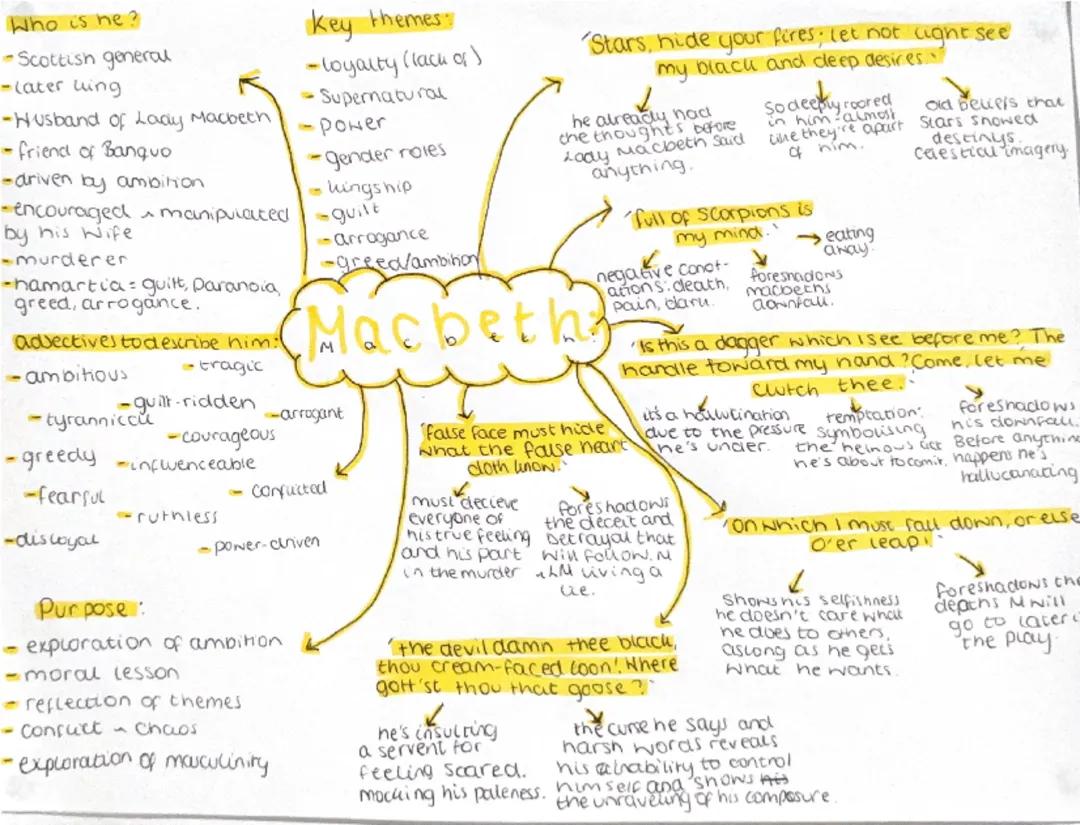 Who is he?
- Scottish general
- later king
- Husband of Lady Macbeth
- friend of Banquo
- driven by ambition
- encouraged & manipulated
by his wife
- murderer
- hamartia = guilt, paranoia,
greed, arrogance.
Key themes:
- loyalty (lack of)
- Supernatural
- power
- gender roles
- kingship
- guilt
- arrogance
- greed/ambition
'Stars, hide your fires; let not light see
my black and deep desires.'
he already had
the thoughts before
Lady Macbeth said
anything.
so deeply rooted
in him - almost
like they're apart
of him.
old beliefs that
stars showed
destinys.
celestical imagery.
'full of scorpions is
my mind.'
eating
away.
negative conot-
ations: death,
pain, dark.
foreshadows
macbeths
downfall.
Macbeth:
Macbeth:
adjectives to describe him:
- ambitious
- tragic
- guilt-ridden
- tyrannical
- arrogant
- courageous
- greedy
- influenceable
- fearful
- conflicted
- ruthless
- disloyal
- power-driven
'Is this a dagger which I see before me? The
handle toward my hand? Come, let me
clutch thee.'
it's a hallucination
due to the pressure
he's under.
temptation:
symbolising
the heinous act
he's about to comit.
foreshadows
his downfall.
Before anything
happens he's
hallucanating
'false face must hide
what the false heart
doth know.'
must decieve
everyone of
his true feeling
and his part
in the murder
foreshadows
the deceit and
betrayal that
will follow. M
& LM living a
lie.
'On which I must fall down, or else
o'er leap'
shows his selfishness
he doesn't care what
he does to others,
aslong as he gets
what he wants.
foreshadows the
depths M will
go to later i
the play.
Purpose:
- exploration of ambition
- moral lesson
- reflection of themes
- conflict & chaos
- exploration of masculinity
'the devil damn thee black,
thou cream-faced loon! Where
gott'st thou that goose?'
he's insulting
a servent for
feeling scared.
mocking his paleness.
the curse he says and
harsh words reveals
his inability to control
himself and shows his
the unraveling of his composure.